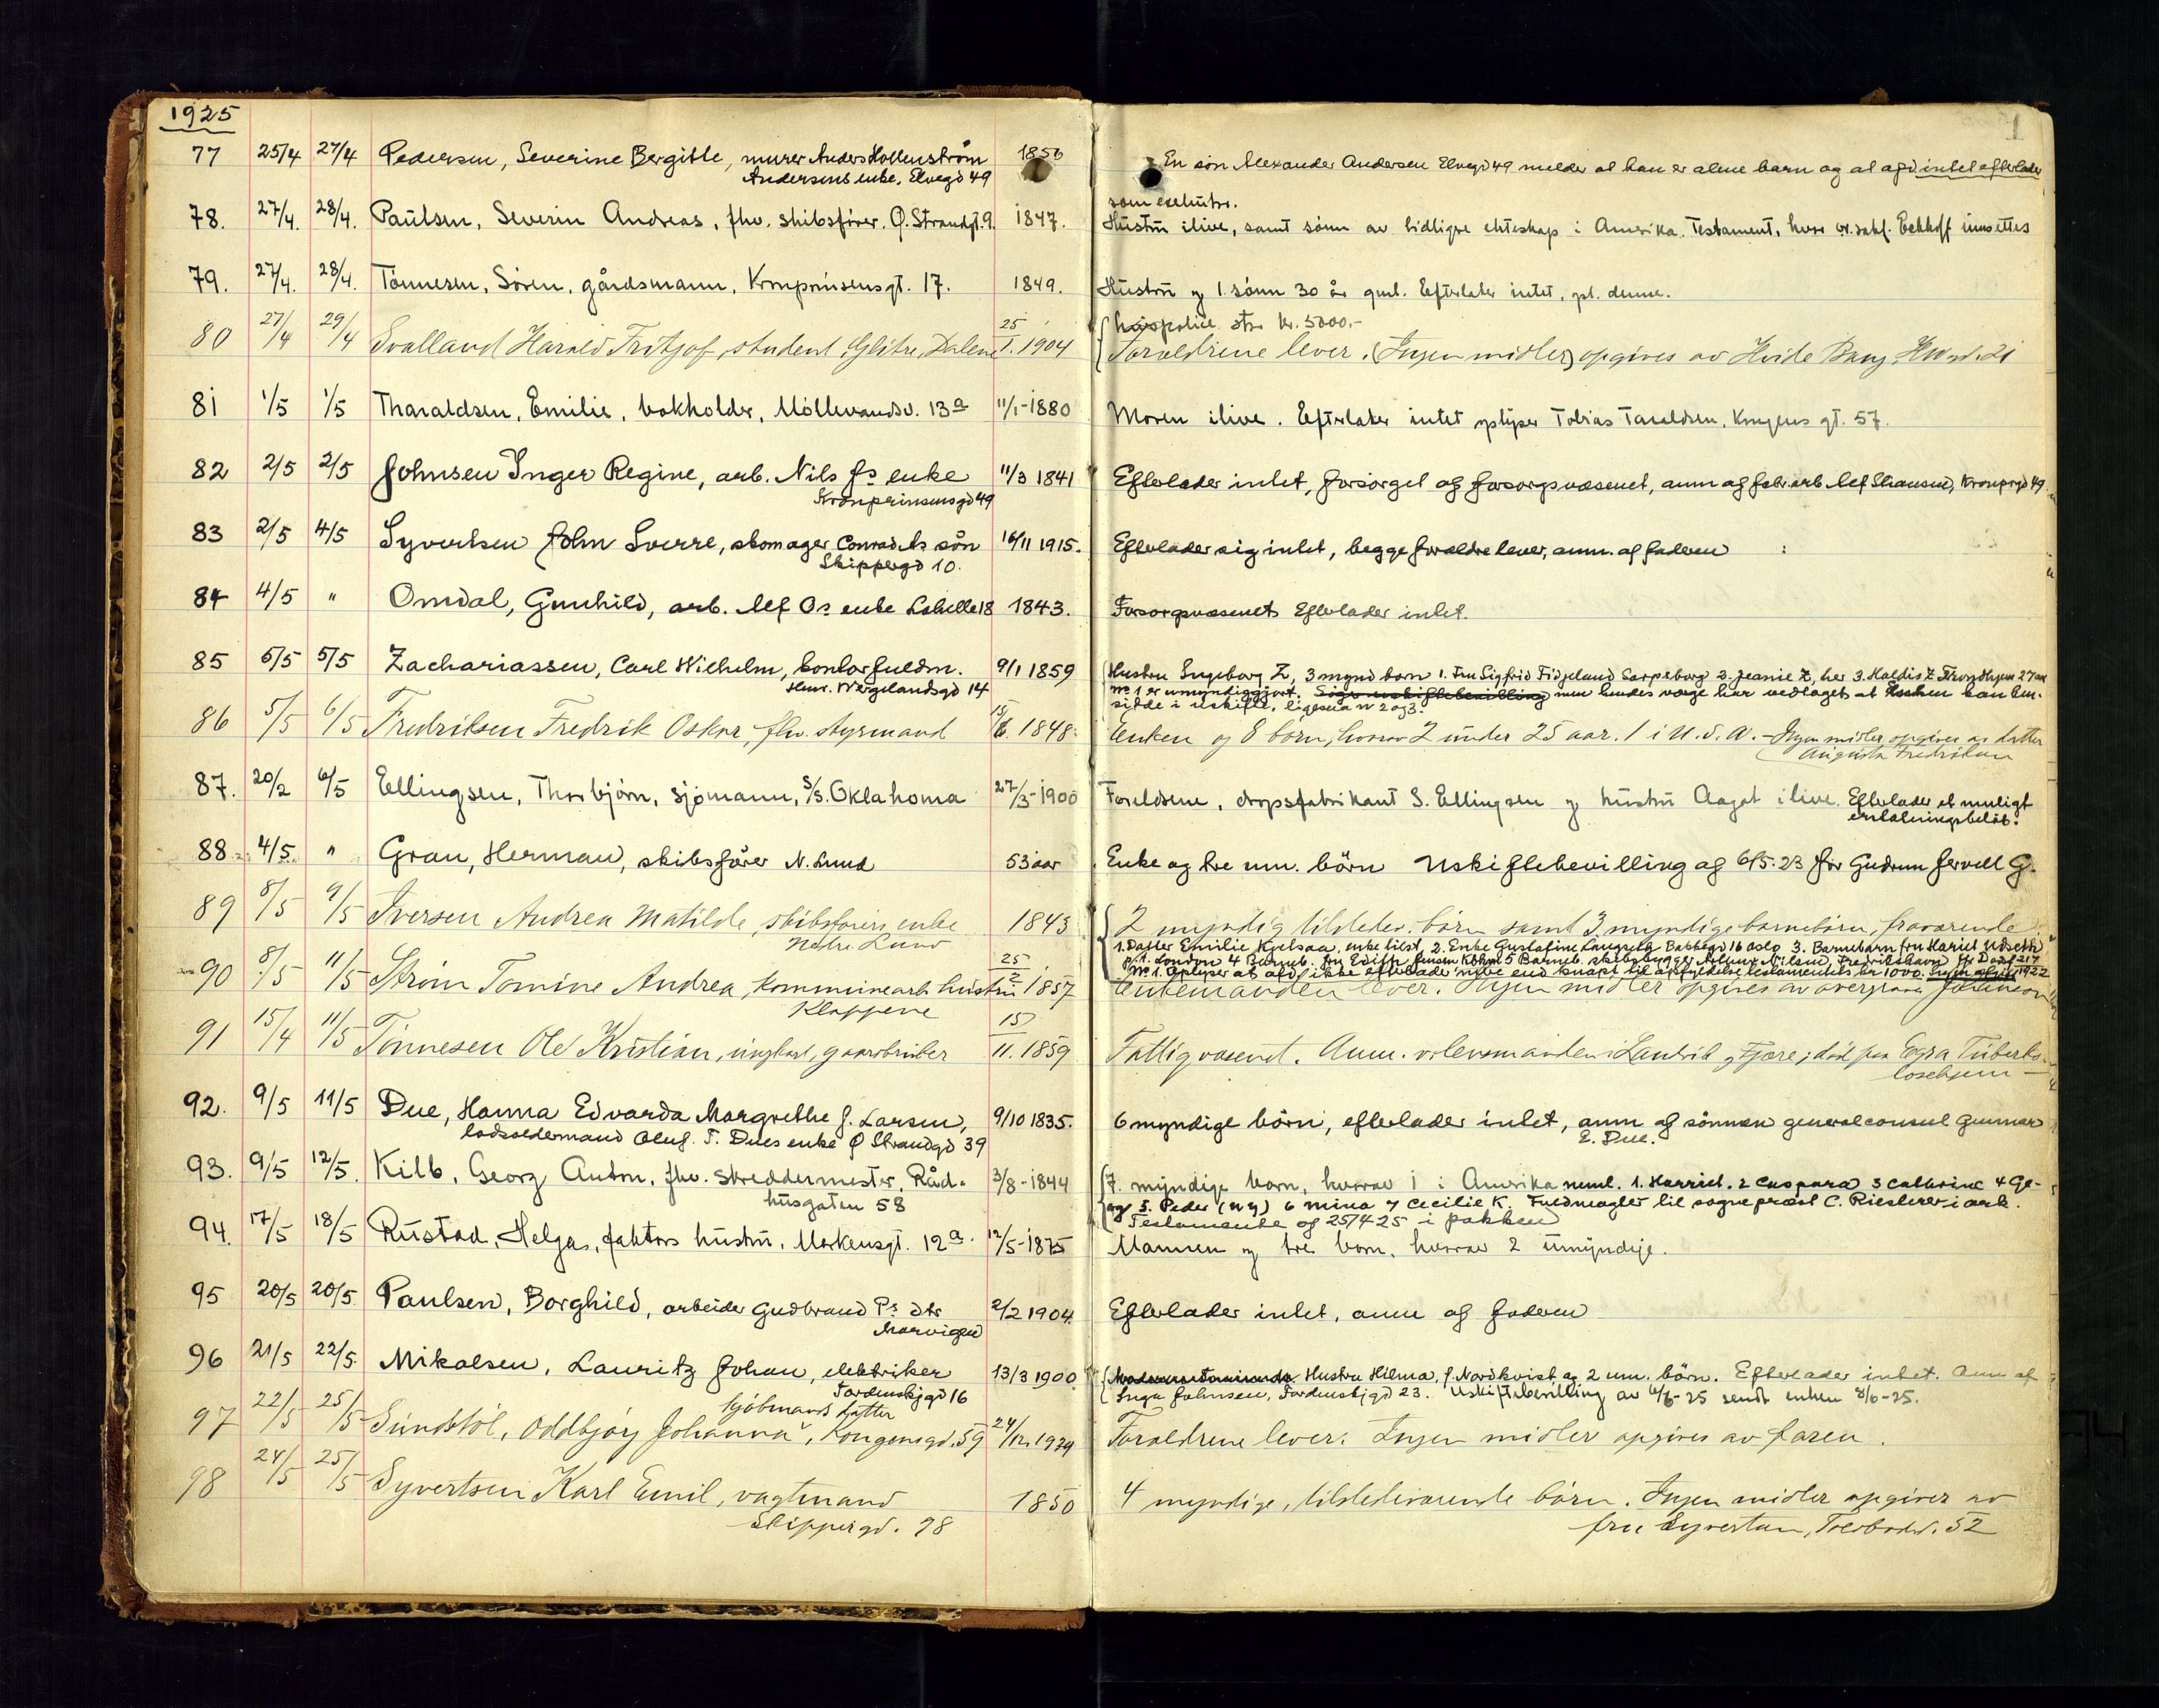 1925
77 25/4 27/4 Pedersen, Severine Bergitte, murer Anders Hollenström 1856 En sön Alexander Andersen Elvegd 49 melder at han er alene barn og at afd intet efterlader
Andersens enke, Elvegd 49
som exekutor.
78. 27/4. 28/4. Paulsen, Severin Andreas, fhv. skibsfører. Ø. Strandgt. 9. 1847. Hustru ilive, samt sønn av tidligre ekteskap i Amerika. Testament, hvor o.r.sakf. Eckhoff innsettes
79. 27/4. 28/4. Tønnesen, Søren, gårdsmann, Kronprinsensgt. 17. 1849. Hustru og 1 sønn 30 år gml. Efterlater intet, opl. denne.
livspolice stor kr. 5000.-
80 27/4 29/4 Svalland Harald Fritjof, student, Glitre, Dalene 25/1. 1904 Foraldrene lever. (Ingen midler) opgives av Hvide Bang, HWgd. 21
81 1/5 1/5 Tharaldsen, Emilie, bokholder, Møllevandsv. 13a 11/1-1880 Moren ilive. Efterlater intet oplyser Tobias Taraldsen, Kongens gt. 57.
82 2/5 2/5 Johnsen Inger Regine, arb. Nils Js enke 11/3 1841 Efterlader intet, forsørget af forsorgsvæsenet, anm af fabr.arb. Alf Skansen, Kronprgd 49.
Kronprinsensgd 49
83 2/5 4/5 Syvertsen John Sverre, skomager Conrad Ss sön 16/11 1915. Efterlader sig intet, begge forældre lever, anm. af faderen
Skippergd 10.
84 4/5 " Omdal, Gunhild, arb. Alf Os enke Lahelle 18 1843. Forsorgsvæsenets Efterlader intet.
85 5/5 5/5 Zachariassen, Carl Wilhelm, kontorfuldm. 9/1 1859 Hustru Ingeborg Z, 3 mynd born 1. Fru Sigfrid Fidjeland Sarpsborg 2. Jeanie Z, her 3. Haldis Z Trondhjem 27 aar
Henr. Wergelandsgd 14
No 1 er umyndiggjort. men hendes værge har vedtaget at enken kan hen-
sidde i uskifte, ligesaa nr 2 og 3.
86 5/5 6/5 Fredriksen Fredrik Oskar, fhv. styrmand 15/6. 1848. Enken og 8 börn, hvorav 2 under 25 aar. 1 i U.S.A. - Ingen midler opgives av datter
Augusta Fredriksen
87. 20/2 6/5 Ellingsen, Thorbjørn, sjømann, S/S. Oklahoma 27/3-1900 Foreldrene, dropsfabrikant S. Ellingsen og hustru Aagot ilive. Efterlader et muligt
erstatningsbeløb.
88 4/5 " Gran, Herman, skibsfører N. Lund 53 aar Enke og tre um. börn Uskiftebevilling af 6/5.23 for Gudrun Jervell G.
89 8/5 9/5 Iversen Andrea Matilde, skibsførers enke 1843 2 myndig tilstedev. börn samt 3 myndige barnebörn, fraværende.
Nedre Lund
1. Datter Emilie Kjelsaa, enke tilst, 2. Enke Gustafine Langfelt Bakkegd 16 Oslo 3. Barnebarn fru Hariet Udseth
p.t. London 4 Barneb. fru Edith Jensen Kbhvn 5 Barneb. skibsbygger Arthur Nilsen, Fredrikshavn
No 1. oplyser at afd ikke efterlader mere end knapt til opfyldelse testamentets kr 1000. 1922
90 8/5 11/5 Strøm Tomine Andrea, kommunearb. hustru 25/12 1857 Enkemanden lever. Ingen midler opgives av overgraver Johnson
Kleppene
91 15/4 11/5 Tönnesen Ole Kristian, ungkarl, gaardbruker 15/11. 1859 Fattigvæsenet. Anm. v. lensmanden i Landvik og Fjære; død paa Egra Tuberku-
losehjem
92. 9/5 11/5 Due, Hanna Edvarda Margrethe f. Larsen, 9/10 1835. 6 myndige börn, efterlader intet, anm af sönnen generalconsul Gunnar
lodsoldermand Oluf. T. Dues enke Ø Strandgd 39
E. Due.
93. 9/5 12/5. Kilb, Georg Anton, fhv. skreddermester, Råd- 3/8-1844 7 myndige barn, hvorav 1 i Amerika neml. 1. Harriet. 2 Caspara 3 Cathrine 4 Ge-
husgaten 58
org 5. Peder (N Y) 6 Mina 7 Cecilie K. Fuldmagter til sogneprest C. Riesterer i ark.
Testamente af 25/4 25 i pakken
94. 17/5 18/5 Rustad, Helga, faktors hustru, Markensgt. 12a. 12/5-1875 Mannen og tre barn, hvorav 2 umyndige.
95 20/5 20/5 Paulsen, Borghild, arbeider Gudbrand Ps dtr 2/2 1904. Efterlader intet, anm af faderen
Marvigen
96 21/5 22/5. Mikalsen, Lauritz Johan, elektriker 13/3 1900. Hustru Hilma, f. Nordkvist og 2 um. börn. Efterlader intet. Anm af
Tordenskjgd 16
Inga Johnsen, Tordenskjgd 23. Uskiftebevilling av 6/6-25 sendt enken 8/6-25.
97 22/5 25/5 Sundstöl, Oddbjörg Johanna, Kongensgd. 59 24/12. 1924 Foraldrene lever. Ingen midler opgives av faren.
kjøbmands datter
98 24/5 25/5 Syvertsen Karl Emil, vagtmand 1850 4 myndige, tilstedeværende börn. Ingen midler opgives av
Skippergd. 98
fru Syvertsen, Torvbodv. 52